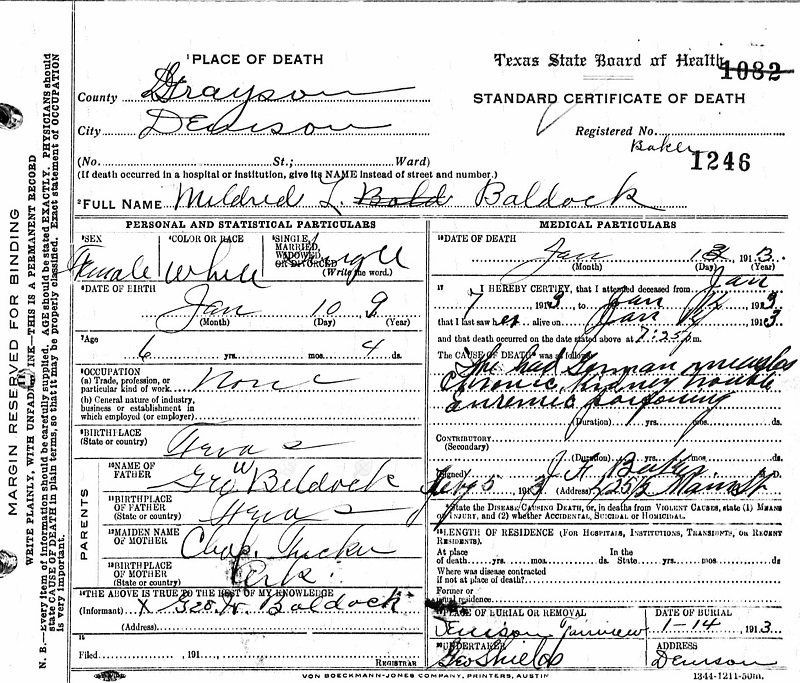 MARGIN RESERVED FOR BINDING
WRITE PLAINLY, WITH UNFADING INK—THIS IS A PERMANENT RECORD
N. B.—Every item of information should be carefully supplied. AGE should be stated EXACTLY. PHYSICIANS should
state CAUSE OF DEATH in plain terms, so that it may be properly classified. Exact statement of OCCUPATION
is very important.
1 PLACE OF DEATH
Texas State Board of Health
1082
County Grayson
STANDARD CERTIFICATE OF DEATH
City Denison
Registered No.
Baker
1246
(No. St.; Ward)
(If death occurred in a hospital or institution, give its NAME instead of street and number.)
2 FULL NAME Mildred L. Bold Baldock
PERSONAL AND STATISTICAL PARTICULARS
3 SEX
Female
4 COLOR OR RACE
White
5 SINGLE,
MARRIED,
WIDOWED
OR DIVORCED
(Write the word.)
Single
6 DATE OF BIRTH
Jan 10 9
(Month) (Day) (Year)
7 Age
6 yrs. mos. 4 ds.
8 OCCUPATION
(a) Trade, profession, or
particular kind of work None
(b) General nature of industry,
business or establishment in
which employed (or employer)
9 BIRTHPLACE
(State or country) Texas
PARENTS
10 NAME OF
FATHER Geo W Beldock
11 BIRTHPLACE
OF FATHER
(State or country) Texas
12 MAIDEN NAME
OF MOTHER Tucker
13 BIRTHPLACE
OF MOTHER
(State or country)
14 THE ABOVE IS TRUE TO THE BEST OF MY KNOWLEDGE
(Informant) X Geo. W. Baldock
(Address)
15
Filed , 191
REGISTRAR
MEDICAL PARTICULARS
16 DATE OF DEATH
Jan 13 1913
(Month) (Day) (Year)
17 I HEREBY CERTIFY, that I attended deceased from Jan
7 1913 to Jan 12 1913
that I last saw her alive on Jan 12 1913
and that death occurred on the date stated above at 7:25 P m.
The CAUSE OF DEATH was as follows:
She had German measles
chronic, Kidney trouble
poisoning
(Duration) yrs. mos. ds.
CONTRIBUTORY
(Secondary)
(Duration) yrs. mos. ds.
(Signed) J. F. Baker M. D.
Feby 5 1913 (Address) 225½ Main St
*State the DISEASE CAUSING DEATH, or, in deaths from VIOLENT CAUSES, state (1) MEANS
INJURY, and (2) whether ACCIDENTAL, SUICIDAL or HOMICIDAL.
18 LENGTH OF RESIDENCE (FOR HOSPITALS, INSTITUTIONS, TRANSIENTS, OR RECENT
RESIDENTS).
At place In the
of death yrs. mos. ds. State yrs. mos. ds.
Where was disease contracted
if not at place of death?
Former or
usual residence
19 PLACE OF BURIAL OR REMOVAL
Denison Fairview
DATE OF BURIAL
1-14 1913
20 UNDERTAKER
Geo Shields
ADDRESS
Denison
VON BOECKMANN-JONES COMPANY, PRINTERS, AUSTIN
1344-1211-50m.